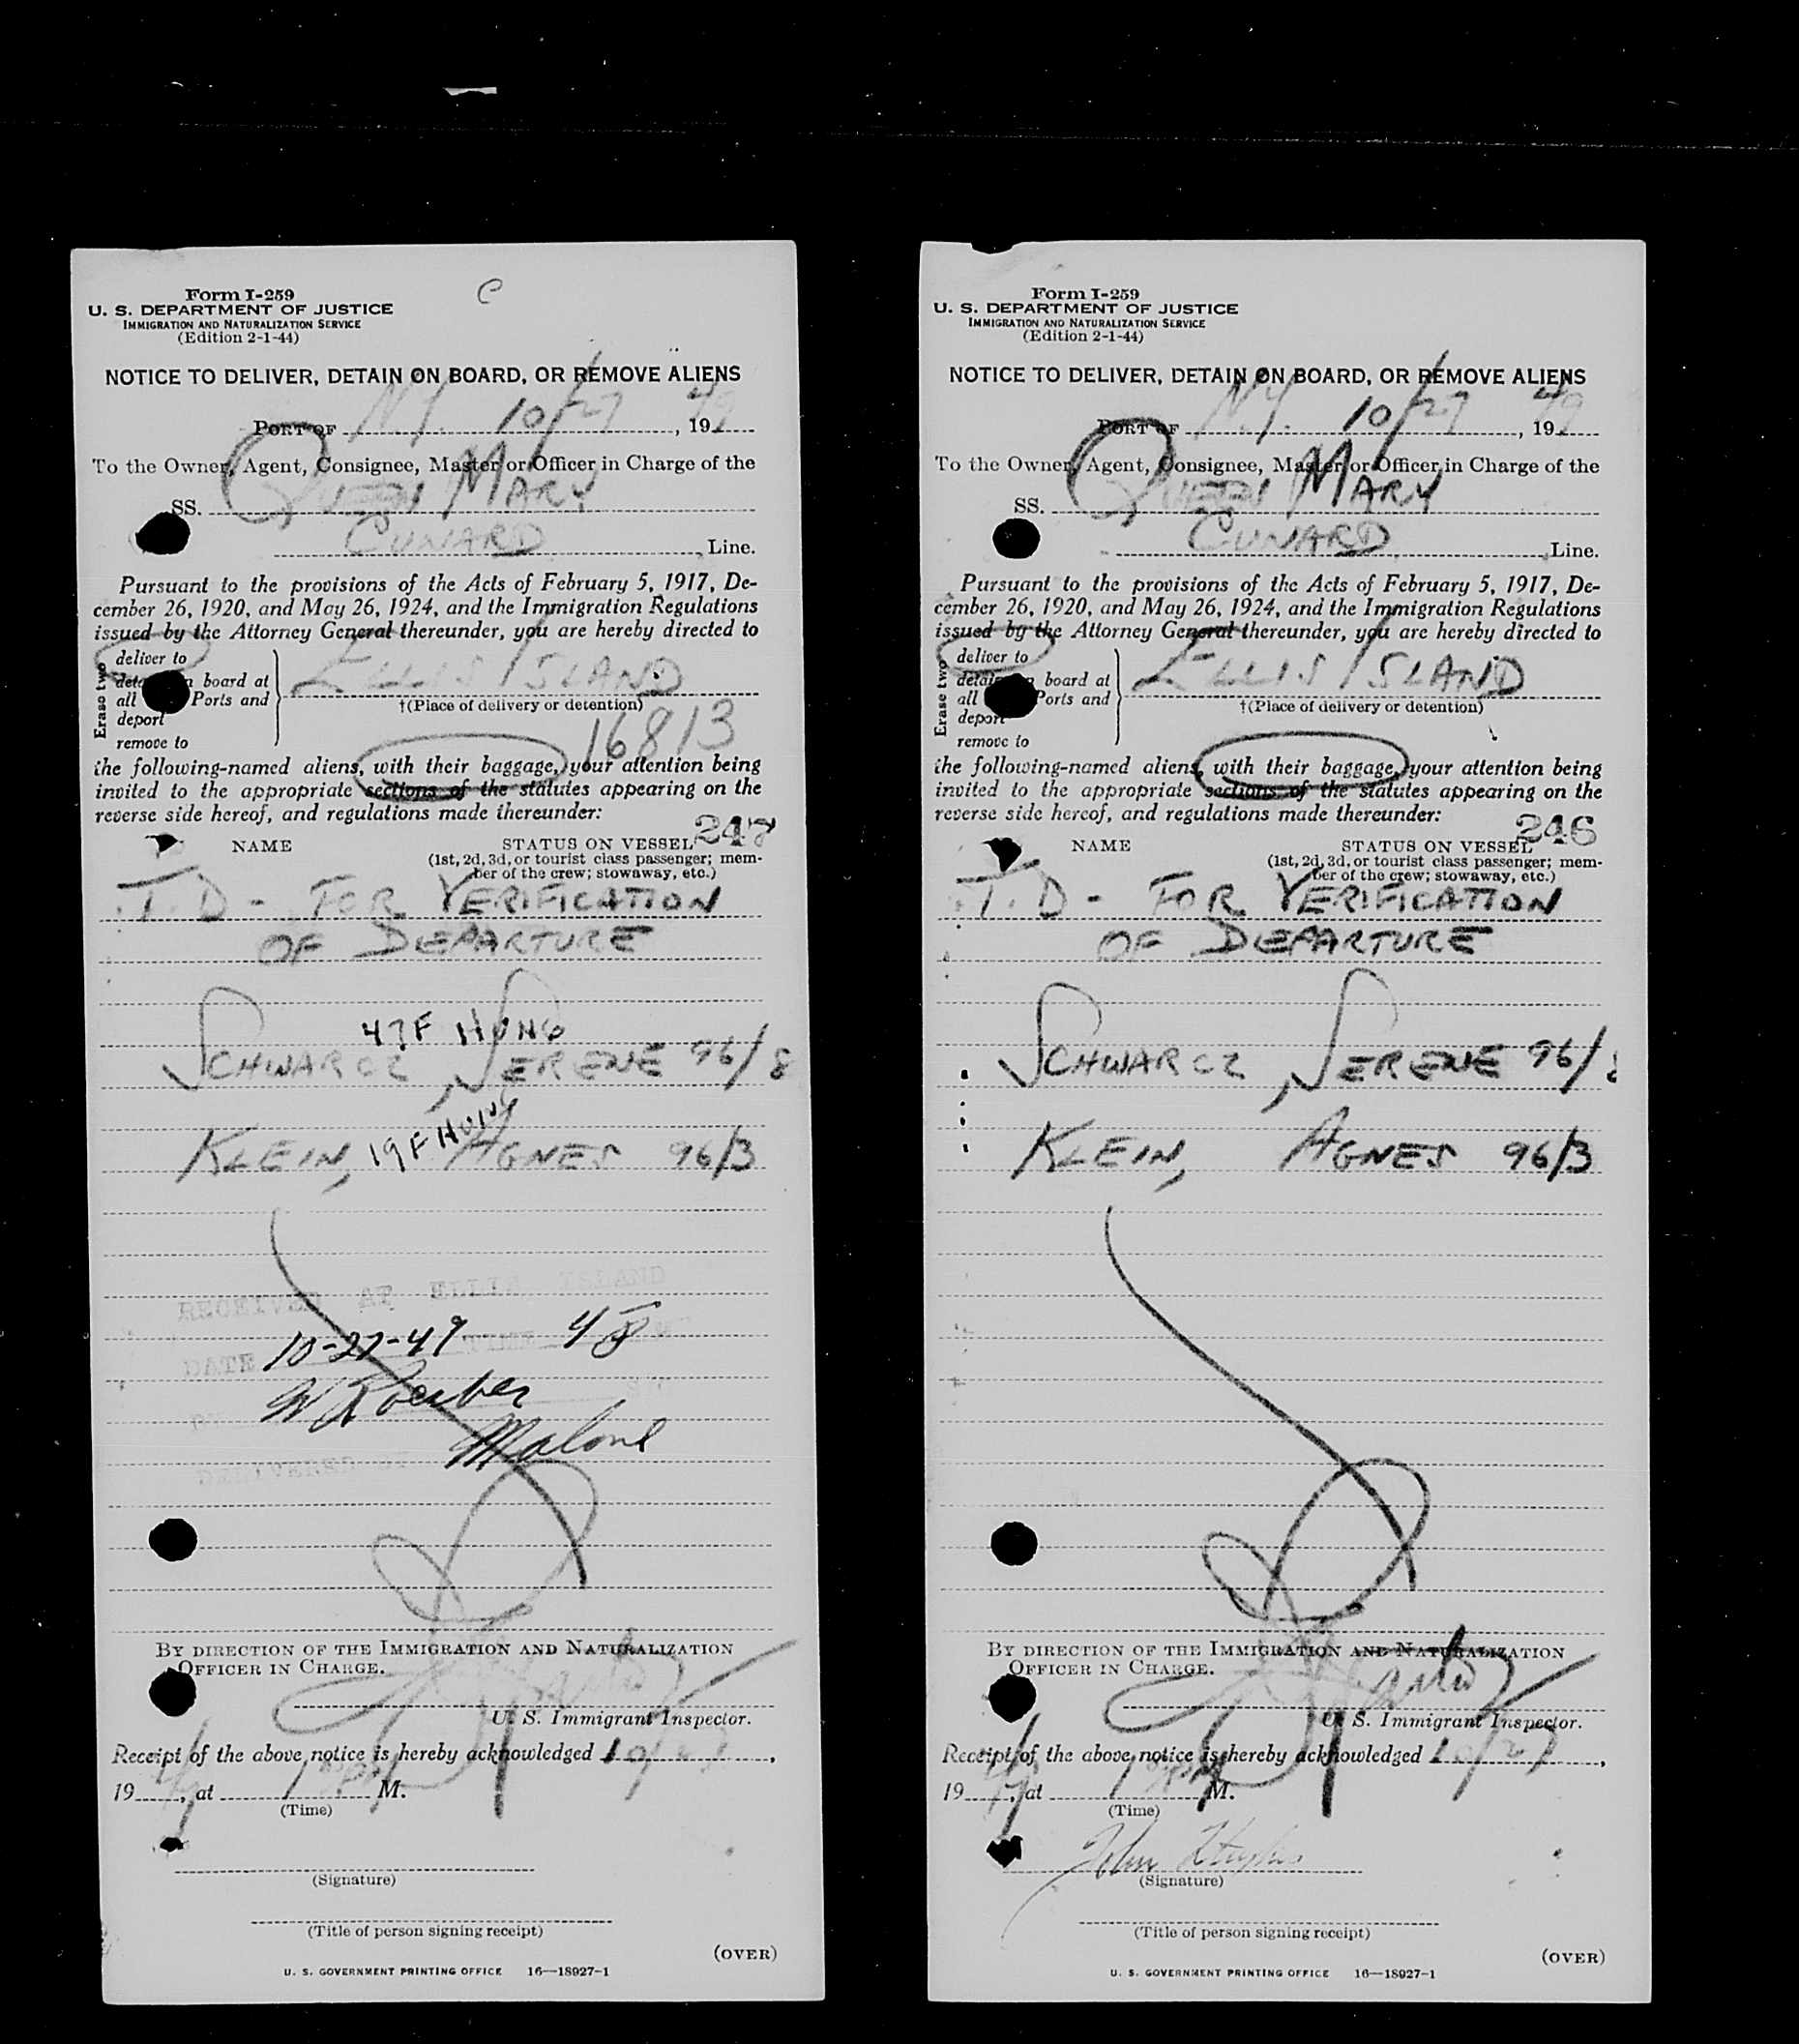 C
Form I-259
U. S. DEPARTMENT OF JUSTICE
IMMIGRATION AND NATURALIZATION SERVICE
(Edition 2-1-44)
NOTICE TO DELIVER, DETAIN ON BOARD, OR REMOVE ALIENS
PORT OF N.Y. 10/27, 1949
To the Owner, Agent, Consignee, Master or Officer in Charge of the
SS. QUEEN MARY
CUNARD, Line.
Pursuant to the provisions of the Acts of February 5, 1917, De-
cember 26, 1920, and May 26, 1924, and the Immigration Regulations
issued by the Attorney General thereunder, you are hereby directed to
Erase two
deliver to
board at
all Ports and
deport
remove to
ELLIS ISLAND
†(Place of delivery or detention)
16813
the following-named aliens, with their baggage, your attention being
invited to the appropriate sections of the statutes appearing on the
reverse side hereof, and regulations made thereunder:
247
NAME STATUS ON VESSEL
(1st, 2d, 3d, or tourist class passenger; mem-
ber of the crew; stowaway, etc.)
T. D - FOR VERIFICATION
OF DEPARTURE
47F HUNG
SCHWARCZ, SERENE 96/8
19F HUNG
KLEIN, AGNES 96/3
RECEIVED AT ELLIS ISLAND
DATE 10-27-49 TIME
Malone
DELIVERED BY
BY DIRECTION OF THE IMMIGRATION AND NATURALIZATION
OFFICER IN CHARGE.
U. S. Immigrant Inspector.
Receipt of the above notice is hereby acknowledged 10/27,
1949, at M.
(Time)
(Signature)
(Title of person signing receipt)
(OVER)
U. S. GOVERNMENT PRINTING OFFICE 16—18927-1
Form I-259
U. S. DEPARTMENT OF JUSTICE
IMMIGRATION AND NATURALIZATION SERVICE
(Edition 2-1-44)
NOTICE TO DELIVER, DETAIN ON BOARD, OR REMOVE ALIENS
PORT OF N.Y. 10/27, 1949
To the Owner, Agent, Consignee, Master or Officer in Charge of the
SS. QUEEN MARY
CUNARD, Line.
Pursuant to the provisions of the Acts of February 5, 1917, De-
cember 26, 1920, and May 26, 1924, and the Immigration Regulations
issued by the Attorney General thereunder, you are hereby directed to
Erase two
deliver to
detain board at
all Ports and
deport
remove to
ELLIS ISLAND
†(Place of delivery or detention)
the following-named aliens, with their baggage, your attention being
invited to the appropriate sections of the statutes appearing on the
reverse side hereof, and regulations made thereunder:
246
NAME STATUS ON VESSEL
(1st, 2d, 3d, or tourist class passenger; mem-
ber of the crew; stowaway, etc.)
T. D - FOR VERIFICATION
OF DEPARTURE
SCHWARCZ, SERENE 96/8
KLEIN, AGNES 96/3
BY DIRECTION OF THE IMMIGRATION AND NATURALIZATION
OFFICER IN CHARGE.
U. S. Immigrant Inspector.
Receipt of the above notice is hereby acknowledged 10/27,
1949, at M.
(Time)
John
(Signature)
(Title of person signing receipt)
(OVER)
U. S. GOVERNMENT PRINTING OFFICE 16—18927-1